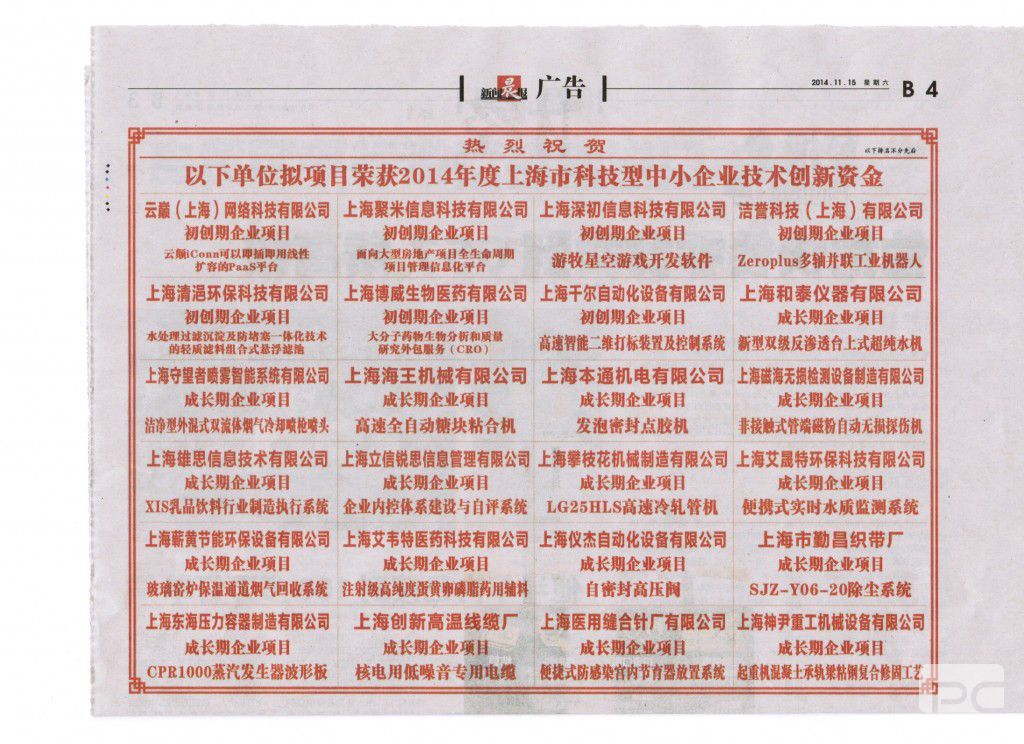 新闻晨报 广告
2014.11.15 星期六 B 4
热烈祝贺
以下排名不分先后
以下单位拟项目荣获2014年度上海市科技型中小企业技术创新资金
云巅（上海）网络科技有限公司
初创期企业项目
云颠iConn可以即插即用线性
扩容的PaaS平台
上海聚米信息科技有限公司
初创期企业项目
面向大型房地产项目全生命周期
项目管理信息化平台
上海深初信息科技有限公司
初创期企业项目
游牧星空游戏开发软件
洁誉科技（上海）有限公司
初创期企业项目
Zeroplus多轴并联工业机器人
上海清浥环保科技有限公司
初创期企业项目
水处理过滤沉淀及防堵塞一体化技术
的轻质滤料组合式悬浮滤池
上海博威生物医药有限公司
初创期企业项目
大分子药物生物分析和质量
研究外包服务（CRO）
上海千尔自动化设备有限公司
初创期企业项目
高速智能二维打标装置及控制系统
上海和泰仪器有限公司
成长期企业项目
新型双级反渗透台上式超纯水机
上海守望者喷雾智能系统有限公司
成长期企业项目
洁净型外混式双流体烟气冷却喷枪喷头
上海海王机械有限公司
成长期企业项目
高速全自动糖块粘合机
上海本通机电有限公司
成长期企业项目
发泡密封点胶机
上海磁海无损检测设备制造有限公司
成长期企业项目
非接触式管端磁粉自动无损探伤机
上海雄思信息技术有限公司
成长期企业项目
XIS乳品饮料行业制造执行系统
上海立信锐思信息管理有限公司
成长期企业项目
企业内控体系建设与自评系统
上海攀枝花机械制造有限公司
成长期企业项目
LG25HLS高速冷轧管机
上海艾晟特环保科技有限公司
成长期企业项目
便携式实时水质监测系统
上海蕲黄节能环保设备有限公司
成长期企业项目
玻璃窑炉保温通道烟气回收系统
上海艾韦特医药科技有限公司
成长期企业项目
注射级高纯度蛋黄卵磷脂药用辅料
上海仪杰自动化设备有限公司
成长期企业项目
自密封高压阀
上海市勤昌织带厂
成长期企业项目
SJZ-Y06-20除尘系统
上海东海压力容器制造有限公司
成长期企业项目
CPR1000蒸汽发生器波形板
上海创新高温线缆厂
成长期企业项目
核电用低噪音专用电缆
上海医用缝合针厂有限公司
成长期企业项目
便捷式防感染宫内节育器放置系统
上海神尹重工机械设备有限公司
成长期企业项目
起重机混凝土承轨梁粘钢复合修固工艺
PC